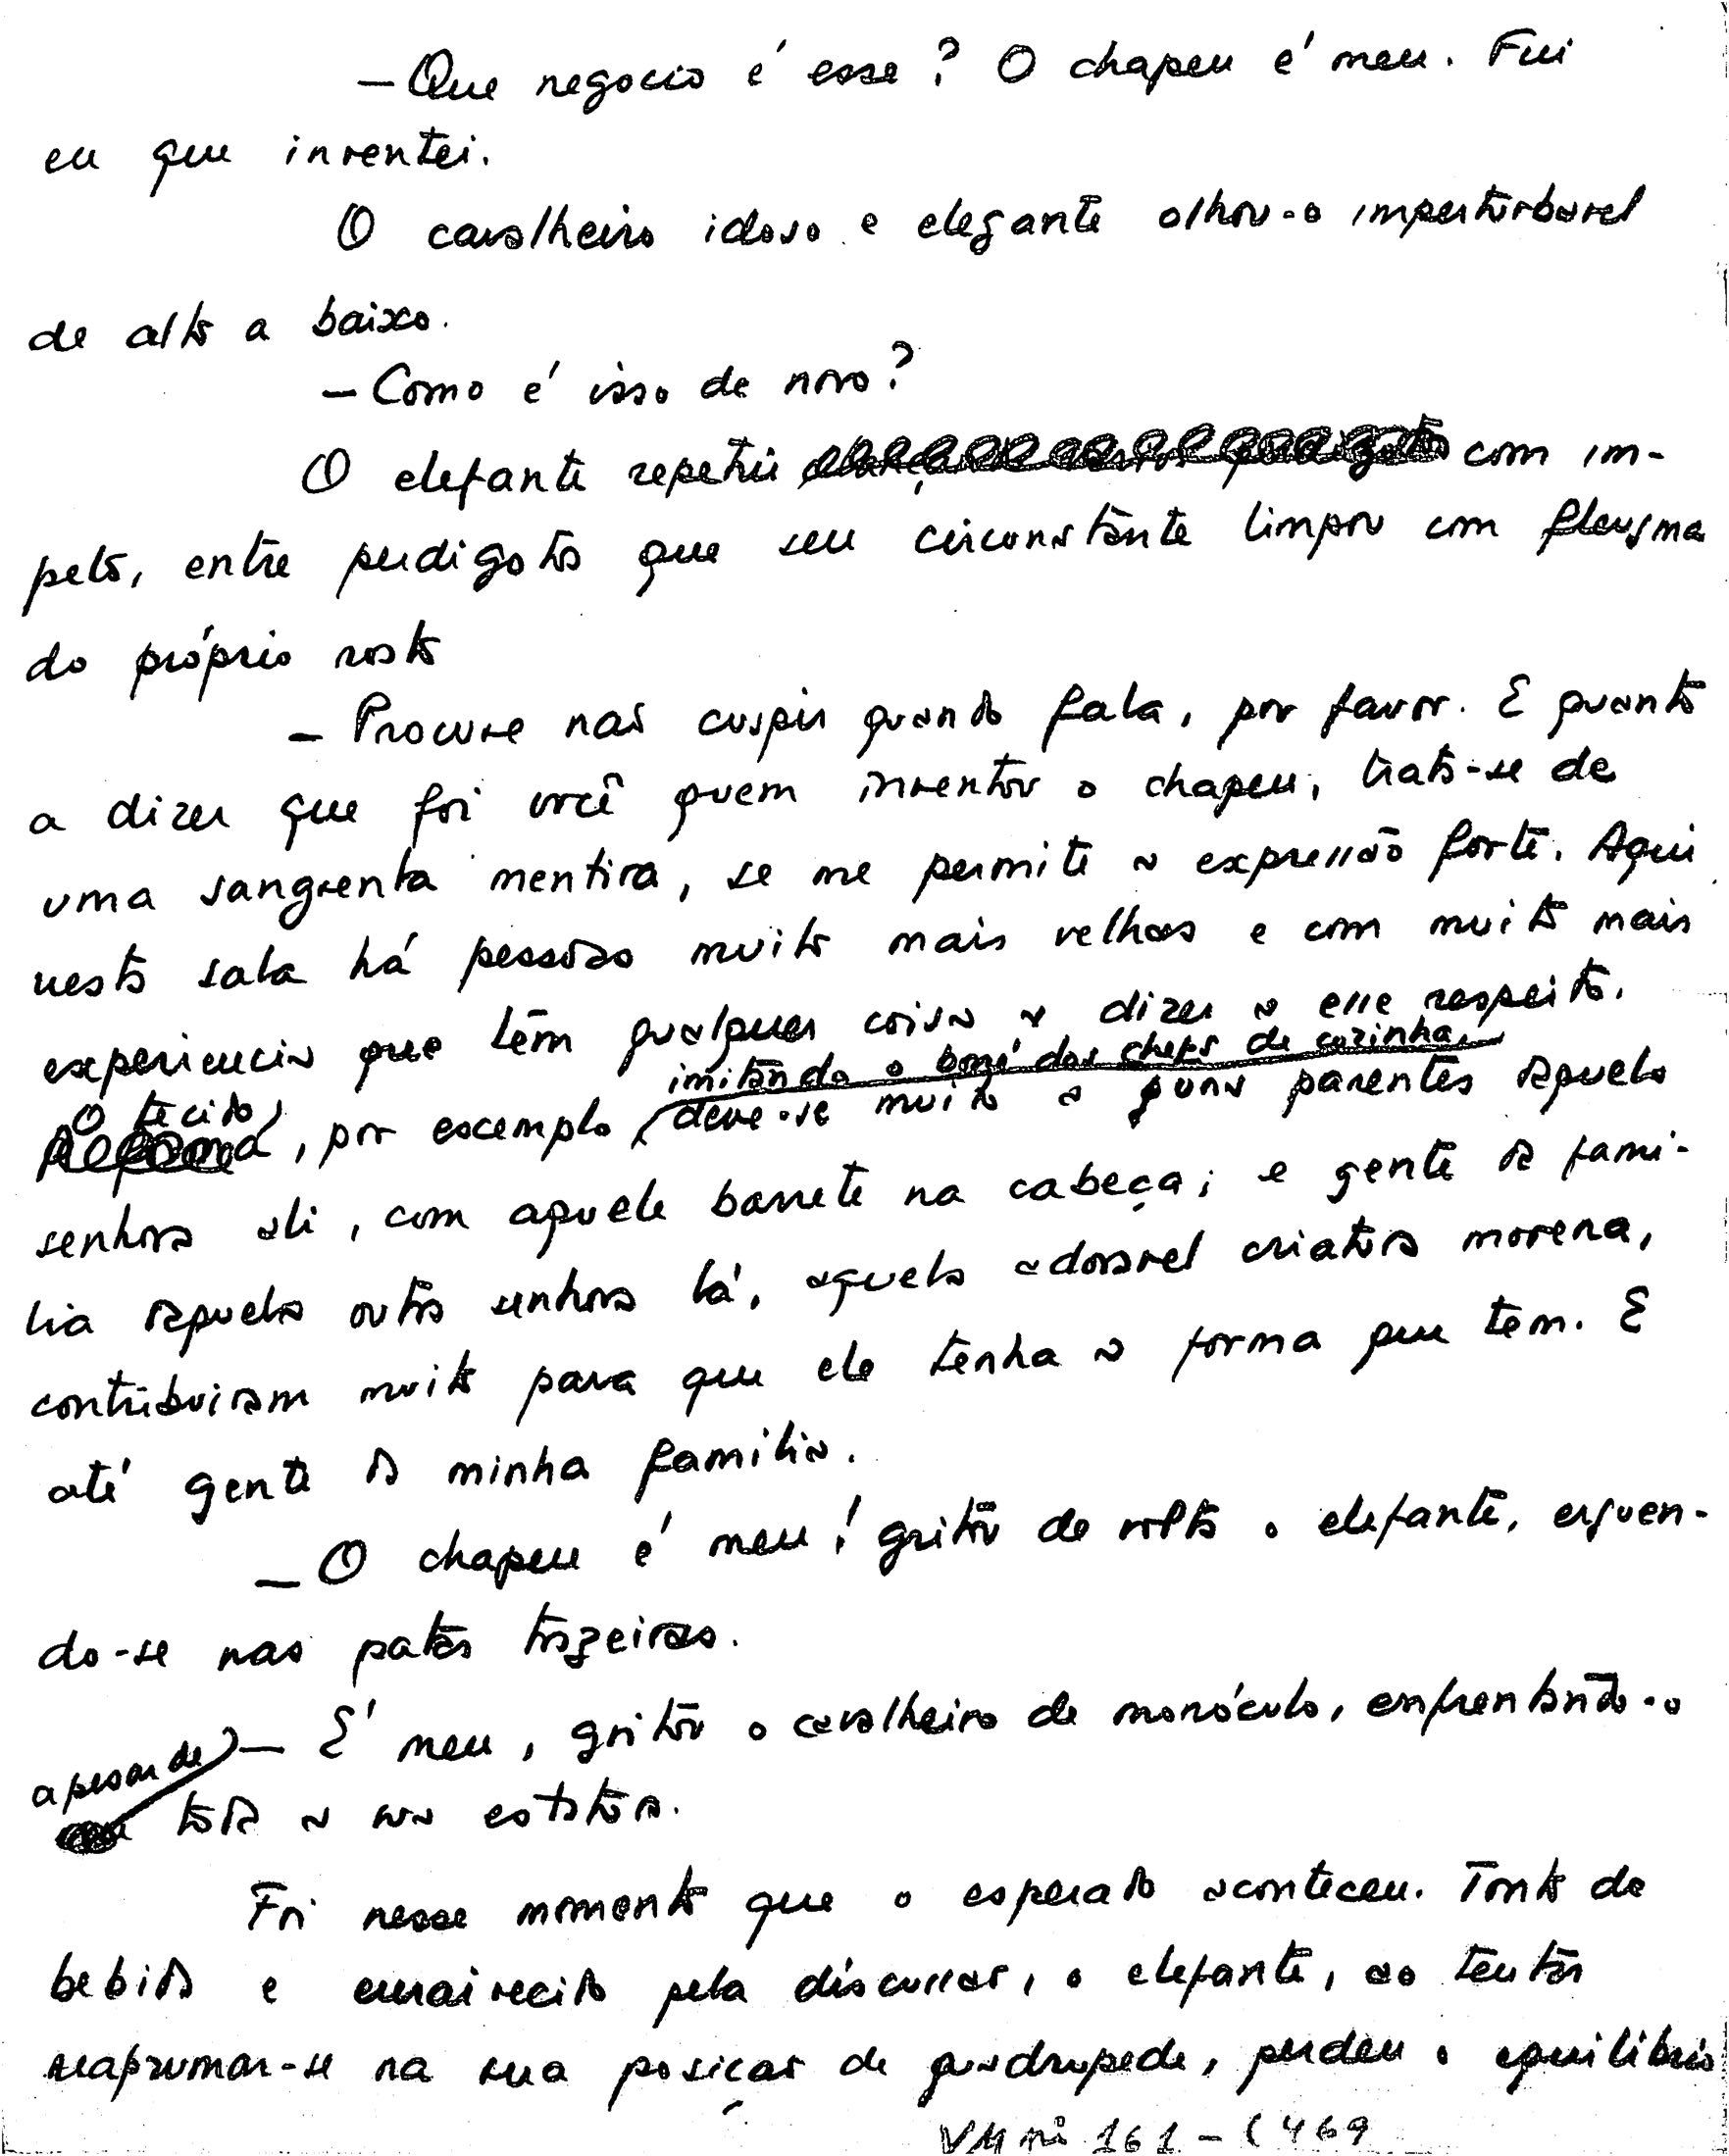 — Que negocio é esse? O chapeu é meu. Fui
eu que inventei.
O cavalheiro idoso e elegante olhou-o imperturbavel
de alto a baixo.
— Como é isso de novo?
O elefante repetiu com im-
peto, entre perdigotos que seu circunstante limpou com fleugma
do próprio rosto
— Procure não cuspir quando fala, por favor. E quanto
a dizer que foi você quem inventou o chapeu, trata-se de
uma sangrenta mentira, se me permite a expressão forte. Aqui
nesta sala há pessoas muito mais velhas e com muito mais
experiencia que têm qualquer coisa a dizer a esse respeito.
imitando o boné dos chefs de cozinha,
O tecido, por exemplo, deve-se muito a quns parentes daquela
senhora ali, com aquele barrete na cabeça; e gente da fami-
lia daquela outra senhora lá, aquela adoravel criatura morena,
contribuiram muito para que ele tenha a forma que tem. E
até gente da minha familia.
— O chapeu é meu! gritou de volta o elefante, erguen-
do-se nas patas trazeiras.
— É meu, gritou o cavalheiro de monóculo, enfrentando-o
apesar de
toda a sua estatura.
Foi nesse momento que o esperado aconteceu. Tonto de
bebida e enraivecido pela discussão, o elefante, ao tentar
reaprumar-se na sua posição de quadrupede, perdeu o equilibrio
VM nº 161 - ( 469